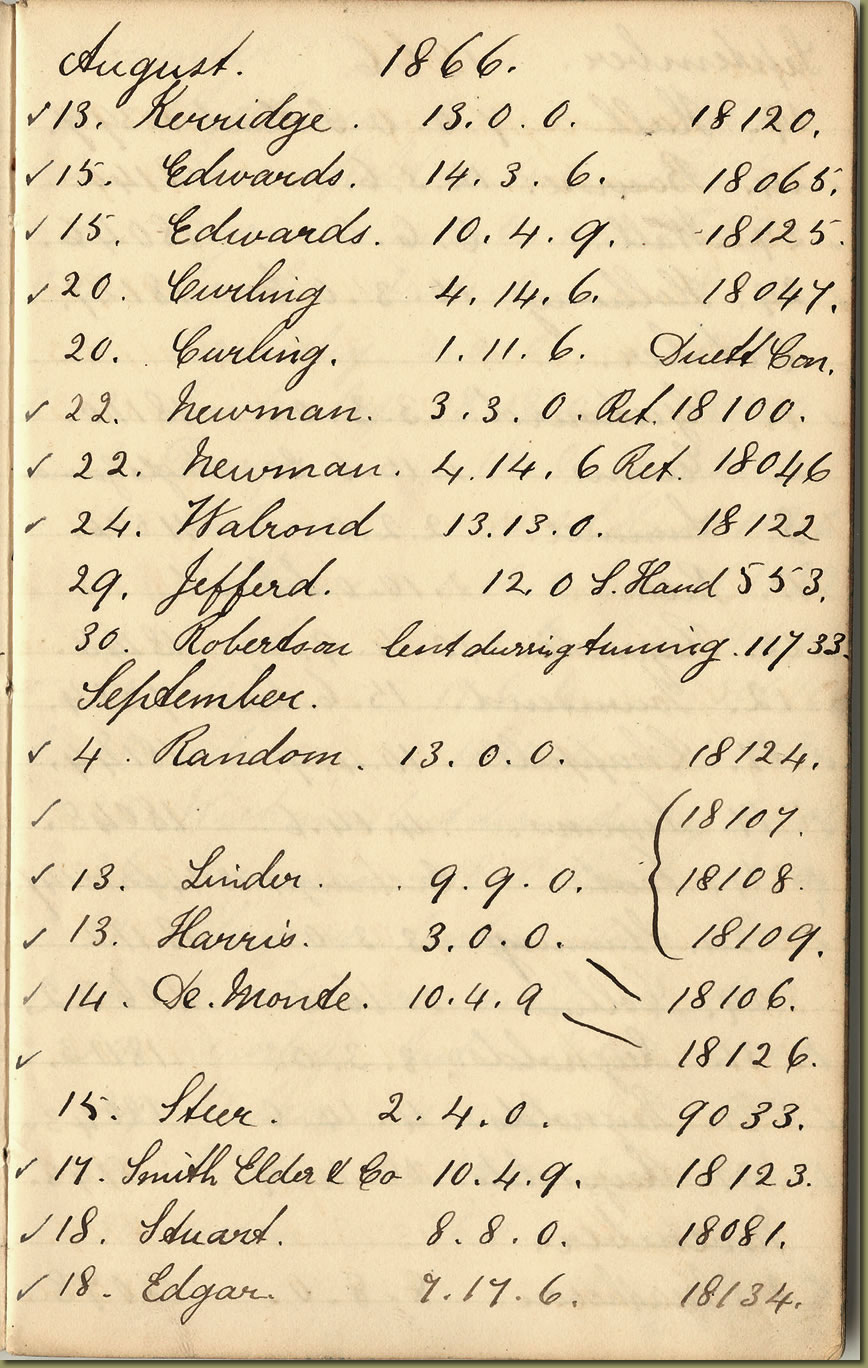 August. 1866.
✓13. Kerridge. 13. 0. 0. 18120.
✓15. Edwards. 14. 3. 6. 18065.
✓15. Edwards. 10. 4. 9. 18125.
✓20. Curling 4. 14. 6. 18047.
20. Curling. 1. 11. 6. Duett Con.
✓22. Newman. 3. 3. 0. Ret. 18100.
✓22. Newman. 4. 14. 6 Ret. 18046
✓24. Walrond 13. 13. 0. 18122
29. Jefferd. 12. 0 S. Hand 553.
30. Robertson lent during tuning. 11733.
September.
✓4. Random. 13. 0. 0. 18124.
✓ 18107.
✓13. Linder. 9. 9. 0. 18108.
✓13. Harris. 3. 0. 0. 18109.
✓14. De. Monte. 10. 4. 9 18106.
✓ 18126.
15. Steer. 2. 4. 0. 9033.
✓17. Smith Elder & Co 10. 4. 9. 18123.
✓18. Stuart. 8. 8. 0. 18081.
✓18. Edgar. 7. 17. 6. 18134.